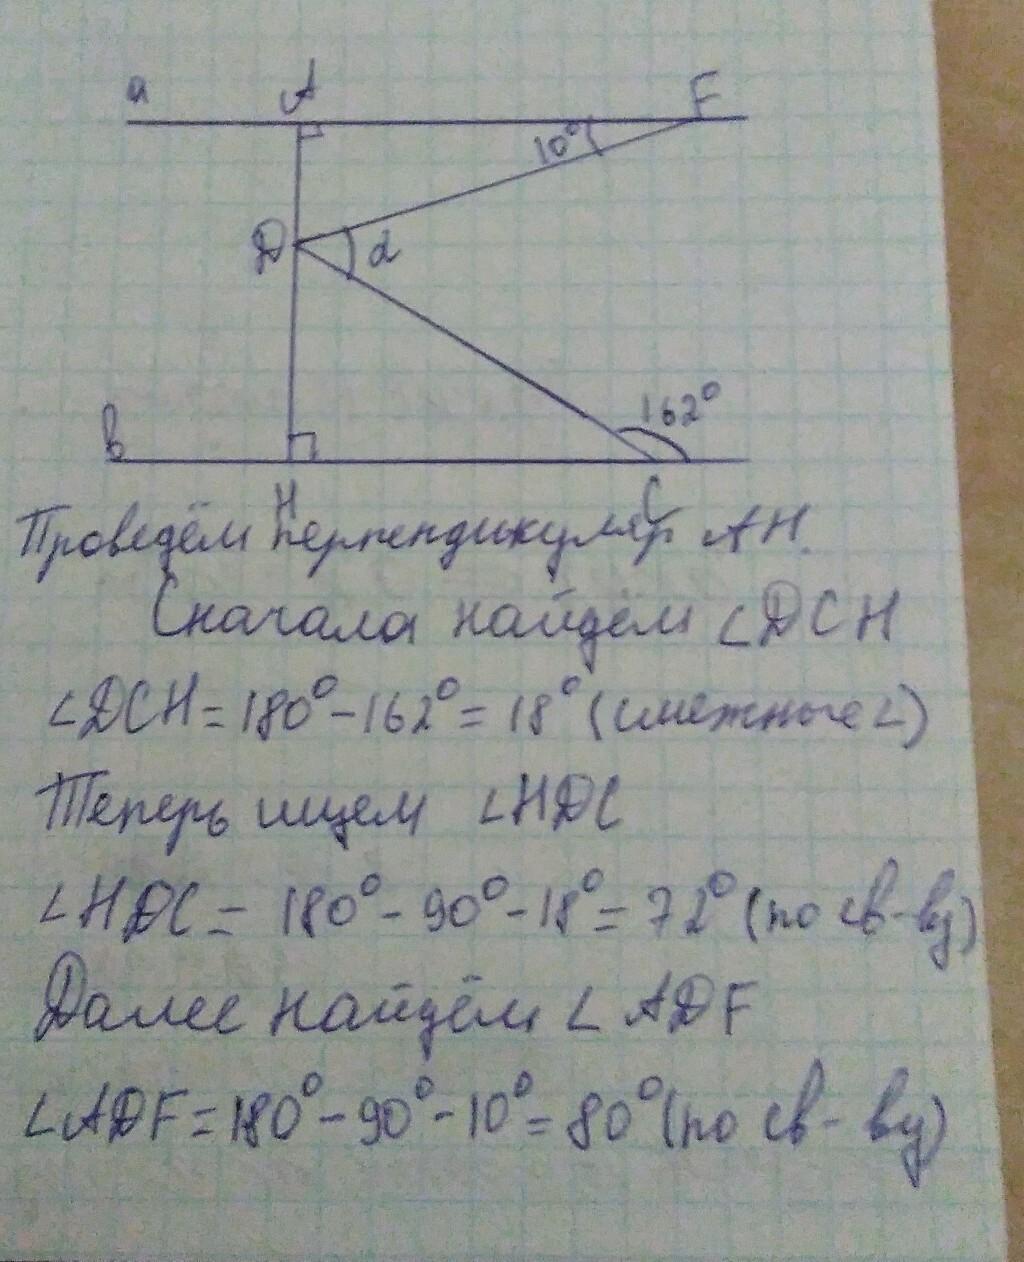 a A F
10°
D α
162°
b
H C
Проведём перпендикуляр AH.
Сначала найдём ∠DCH
∠DCH = 180° - 162° = 18° (смежные ∠)
Теперь ищем ∠HDC
∠HDC = 180° - 90° - 18° = 72° (по св-ву)
Далее найдём ∠ADF
∠ADF = 180° - 90° - 10° = 80° (по св-ву)